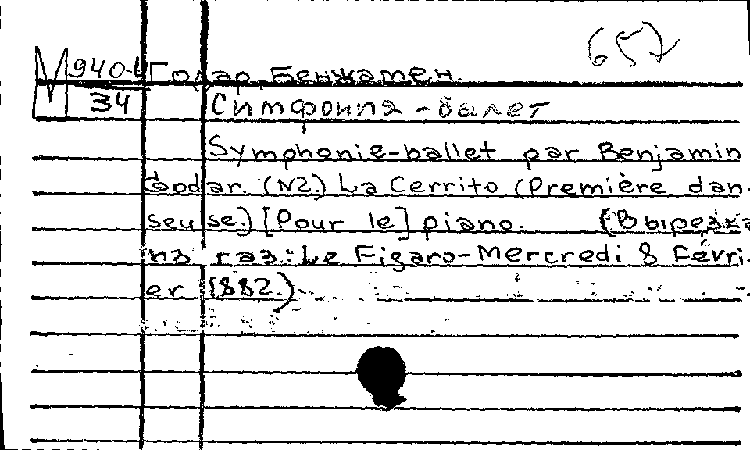 657
М 940-4 Годар, Бенжамен.
34 Симфония-балет
Symphonie-ballet par Benjamin
Godar. (N2.) La Cerrito (Première dan-
seuse.) [Pour le] piano. (Вырезка
из газ.: Le Figaro-Mercredi 8 Févri-
er 1882.)